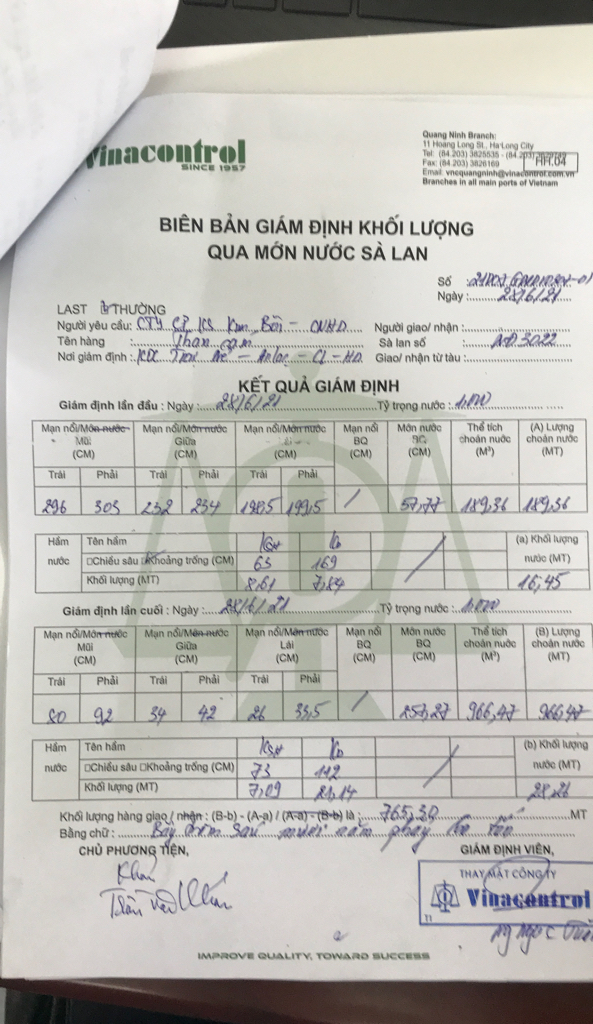 Vinacontrol
SINCE 1957
Quang Ninh Branch:
11 Hoang Long St., Ha Long City
Tel: (84.203) 3825535 - (84.203)
Fax: (84.203) 3826169
Email: vncquangninh@vinacontrol.com.vn
Branches in all main ports of Vietnam
HH.04
BIÊN BẢN GIÁM ĐỊNH KHỐI LƯỢNG
QUA MỚN NƯỚC SÀ LAN
Số :
Ngày : 28/6/21
LAST THƯỜNG
Người yêu cầu: CTY CP KS Kim Bôi -
Người giao/ nhận :
Tên hàng : Than cám
Sà lan số : 3022
Nơi giám định : - CL - HD
Giao/ nhận từ tàu :
KẾT QUẢ GIÁM ĐỊNH
Giám định lần đầu : Ngày : 28/6/21 Tỷ trọng nước : 1,000
Mạn nổi/Mớn nước Mũi (CM) Mạn nổi/Mớn nước Giữa (CM) Mạn nổi/Mớn nước (CM) Mạn nổi BQ (CM) Mớn nước BQ (CM) Thể tích choán nước (M³) (A) Lượng choán nước (MT)
Trái Phải Trái Phải Trái Phải
296 303 232 234 198,5 199,5 / 57,77 189,36 189,36
Hầm nước Tên hầm (a) Khối lượng nước (MT)
□Chiều sâu Khoảng trống (CM) 63 169
Khối lượng (MT) 8,61 7,84 16,45
Giám định lần cuối : Ngày : 28/6/21 Tỷ trọng nước : 1,000
Mạn nổi/Mớn nước Mũi (CM) Mạn nổi/Mớn nước Giữa (CM) Mạn nổi/Mớn nước Lái (CM) Mạn nổi BQ (CM) Mớn nước BQ (CM) Thể tích choán nước (M³) (B) Lượng choán nước (MT)
Trái Phải Trái Phải Trái Phải
80 92 34 42 26 33,5 / 257,27 966,47 966,47
Hầm nước Tên hầm (b) Khối lượng nước (MT)
□Chiều sâu □Khoảng trống (CM) 73 112
Khối lượng (MT) 7,09 21,14 28,26
Khối lượng hàng giao / nhận : (B-b) - (A-a) / (A-a) - (B-b) là : 765,30 MT
Bằng chữ : Bảy trăm sáu mươi năm phảy ba tấn
CHỦ PHƯƠNG TIỆN,
GIÁM ĐỊNH VIÊN,
THAY MẶT CÔNG TY
Vinacontrol
11
IMPROVE QUALITY, TOWARD SUCCESS